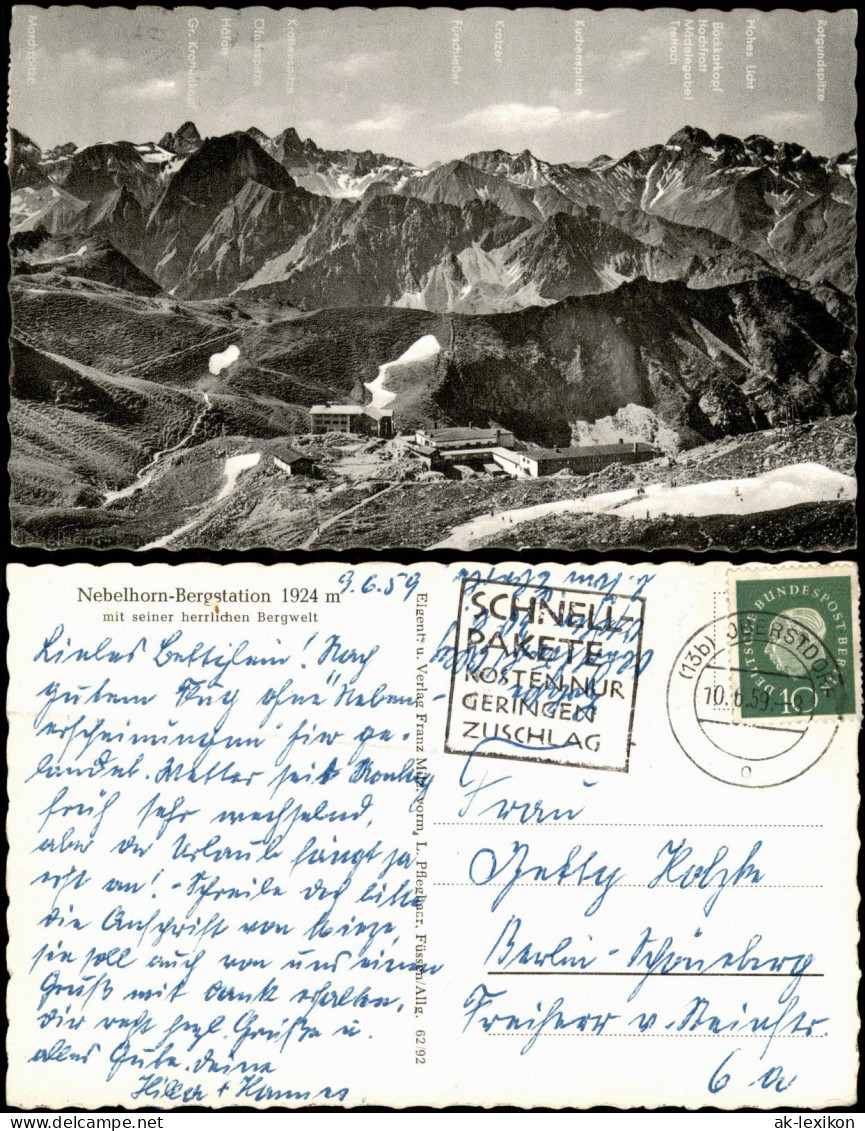 Marchspitze
Gr. Krottenkopf
Höfats
Öfnerspitze
Krottenspitze
Fürschießer
Kratzer
Kuchenspitze
Trettach
Mädelegabel
Hochfrott
Bockkarkopf
Hohes Licht
Rotgundspitze
Nebelhorn-Bergstation 1924 m
mit seiner herrlichen Bergwelt
9.6.59
Liebes Bettilein! Nach
gutem Flug ohne "Neben-
erscheinungen" hier ge-
landet. Wetter seit Montag
früh sehr wechselnd,
aber der Urlaub fängt ja
erst an! - Schreibe doch bitte
die Anschrift von
sie soll auch von uns einen
Gruß mit Dank erhalten.
Dir recht herzl. Grüße u.
alles Gute. Deine
Hilla + Hannes
Eigent- u. Verlag Franz Milz, vorm. L. Pfleghar, Füssen/Allg. 62/92
SCHNELL-
PAKETE
KOSTEN NUR
GERINGEN
ZUSCHLAG
(13b) OBERSTDORF
10.6.59.-8
o
DEUTSCHE BUNDESPOST BERLIN
10
Frau
Betty Holzke
Berlin-Schöneberg
Freiherr v. Steinstr.
6a
ak-lexikon